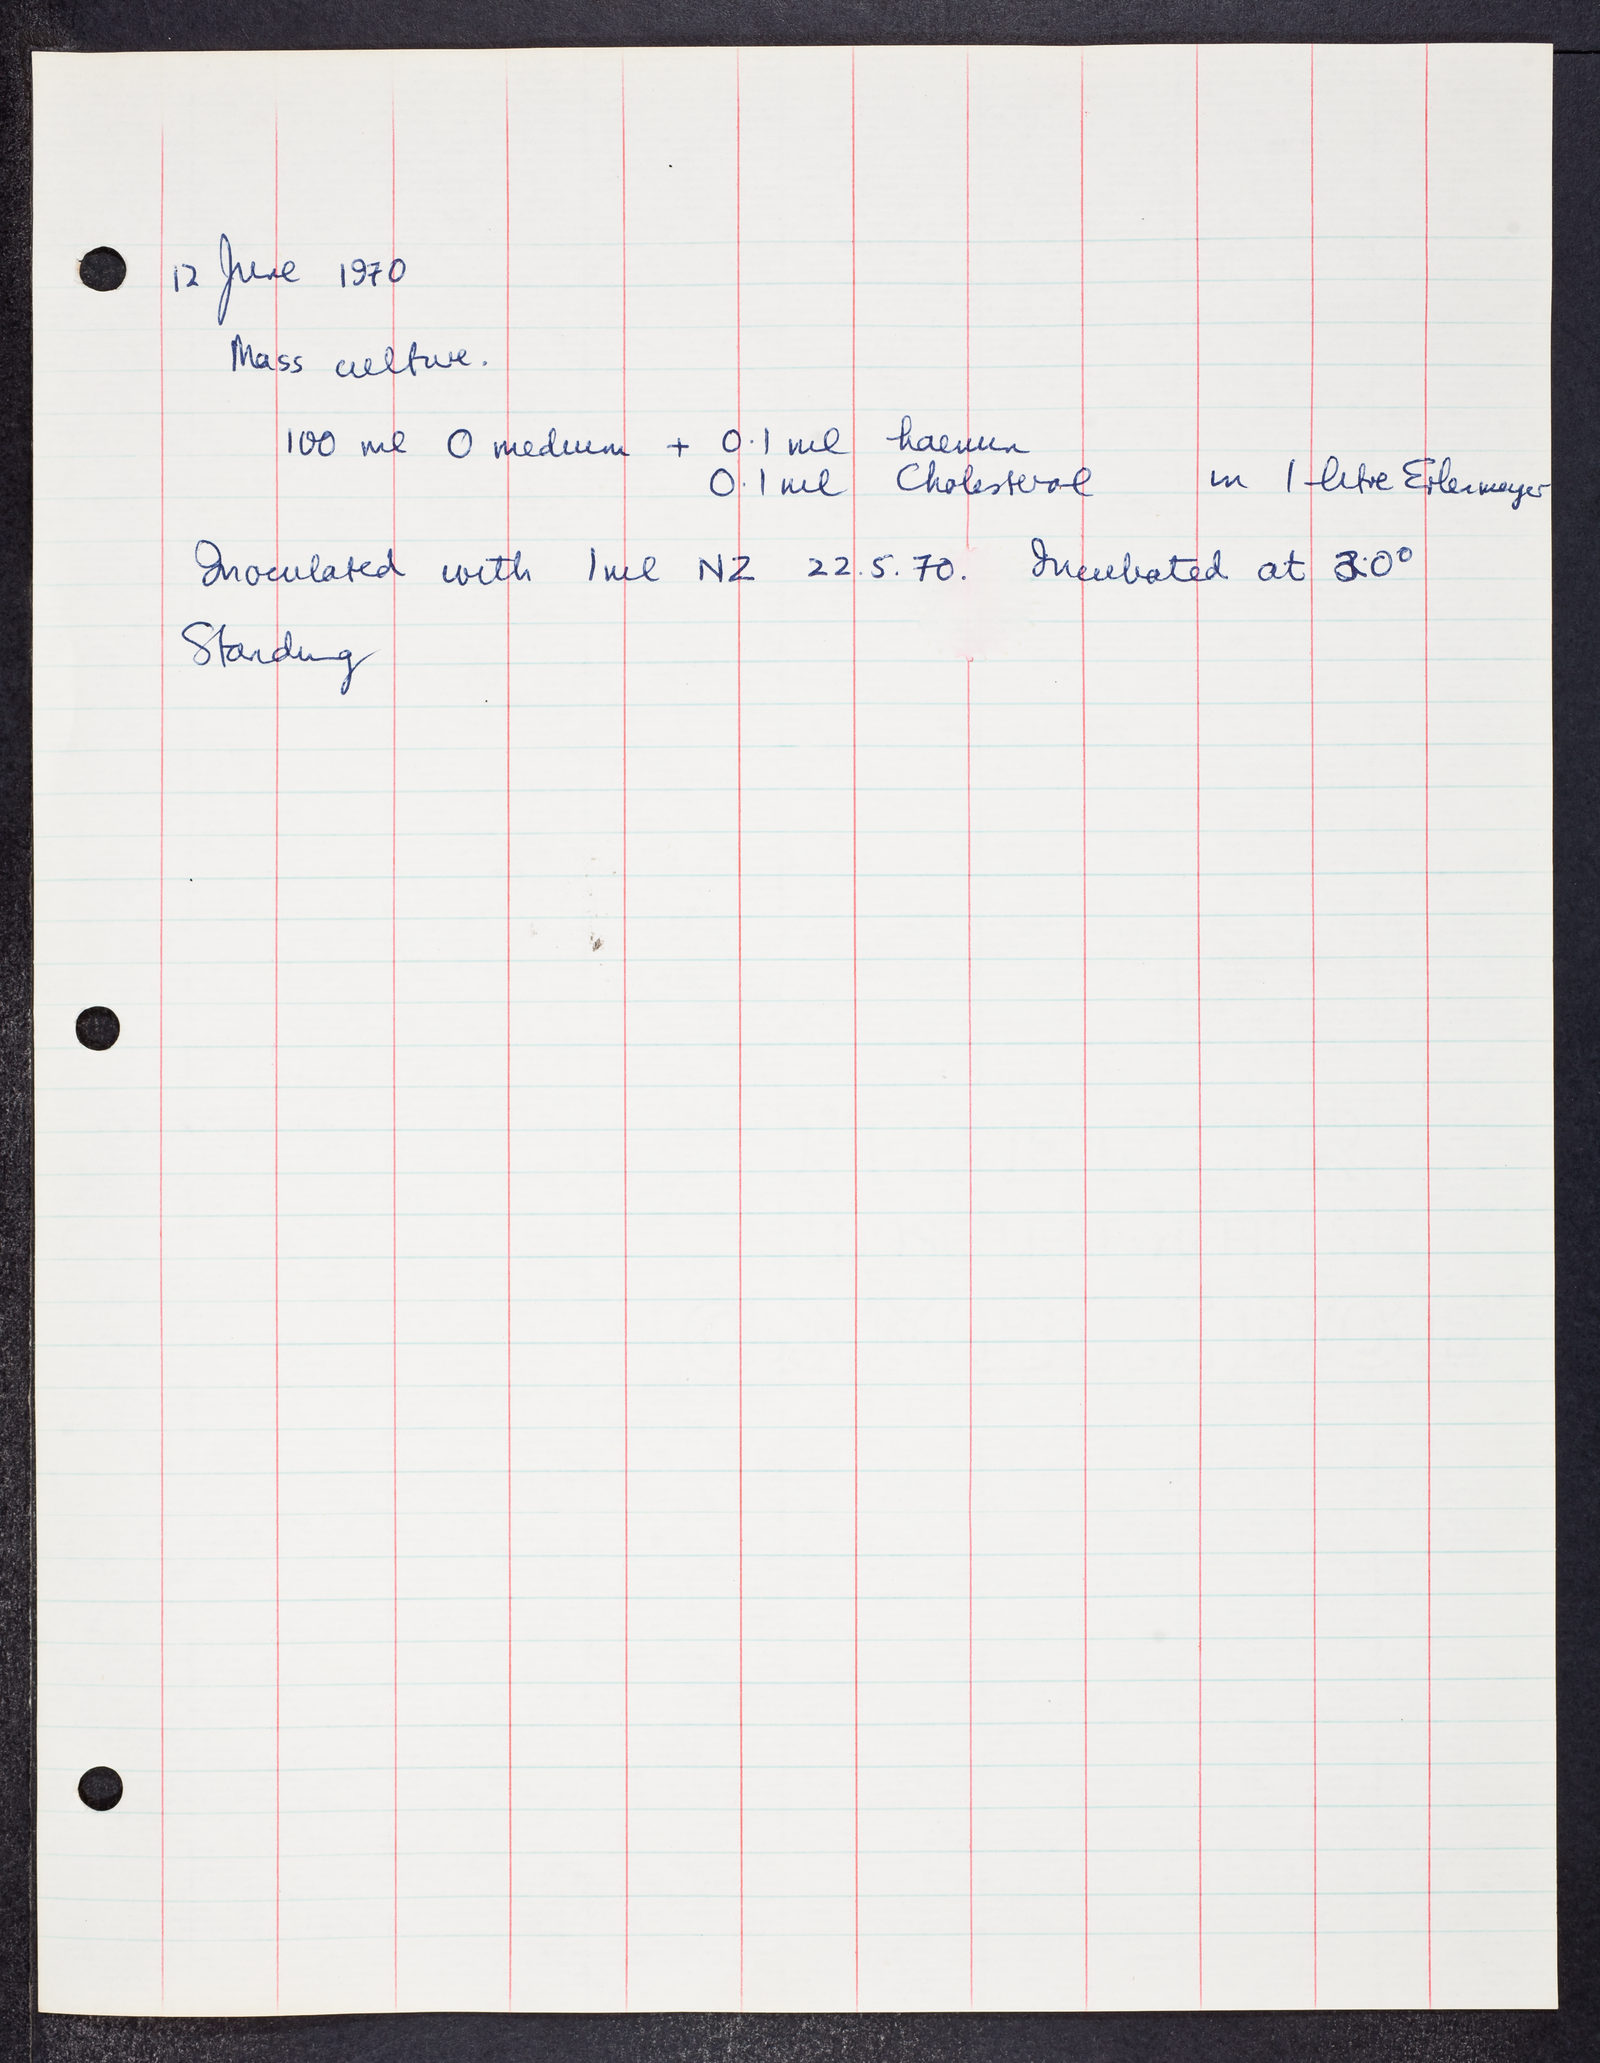 12 June 1970
Mass culture.
100 ml O medium + 0.1 ml haemin
0.1 ml Cholesterol in 1 litre Erlenmeyer
Inoculated with 1 ml NZ 22.5.70. Incubated at 20°
Standing